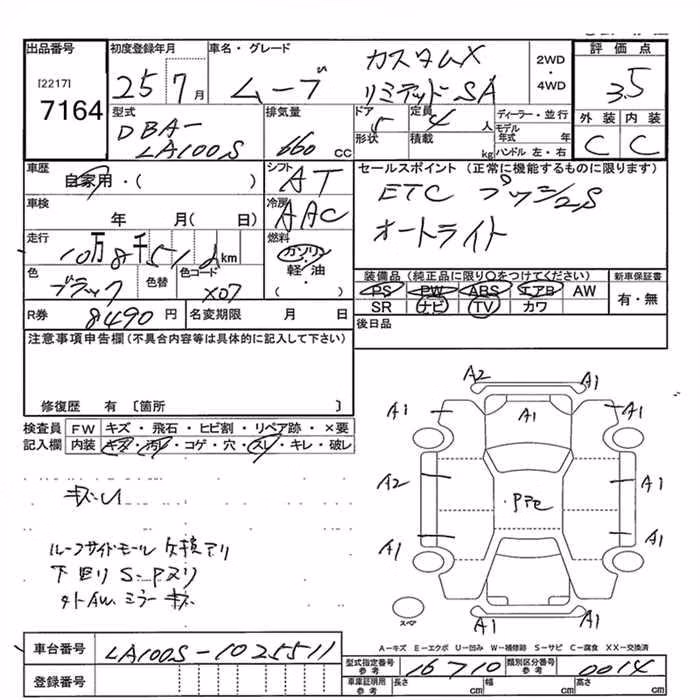 出品番号 初度登録年月 車名・グレード カスタムX 2WD 評価点
[2217] 25 7月 ムーブ リミテッドSA ・ 3.5
7164 4WD
型式 排気量 ドア 5 定員 4人 ディーラー・並行 外装 内装
DBA- 660cc 形状 積載 kg モデル年式 年 C C
LA100S ハンドル 左・右
車歴 シフト セールスポイント (正常に機能するものに限ります)
自家用・( ) AT ETC プッシュS
車検 冷房 オートライト
年 月( 日) AAC
走行 燃料
10万8千51 km ガソリン
色 色替 色コード 軽・油 装備品(純正品に限り○をつけてください) 新車保証書
ブラック X07 ( ) PS PW ABS エアB AW 有・無
R券 8490円 名変期限 月 日 SR ナビ TV カワ
注意事項申告欄(不具合内容等は具体的に記入して下さい) 後日品
修復歴 有 〔箇所 〕
検査員 FW キズ・飛石・ヒビ割・リペア跡・×要
記入欄 内装 キズ・汚レ・コゲ・穴・スレ・キレ・破レ
A2 A1
A1 A1 A1
A2 PPC A1
A1 A1
A1
スペア
ルーフサイドモール 欠損アリ
下回り S.Pヌリ
外AW ミラーキズ
A-キズ E-エクボ U-凹み W-補修跡 S-サビ C-腐食 XX-交換済
車台番号 LA100S-1025511 型式指定番号 参考 16710 類別区分番号 参考 0014
登録番号 車庫証明用 参考 長さ cm 幅 cm 高さ cm